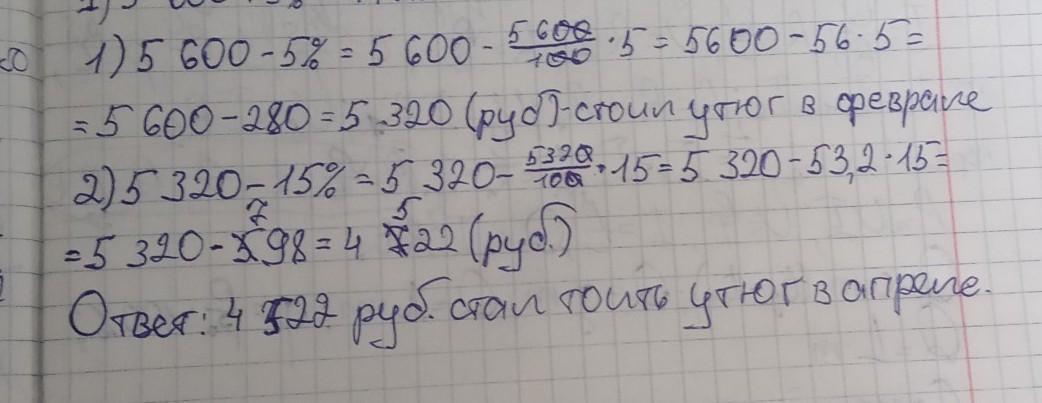 1) 5 600 - 5% = 5 600 - 5600/100 · 5 = 5600 - 56 · 5 =
= 5 600 - 280 = 5 320 (руб)-стоил утюг в феврале
2) 5 320 - 15% = 5 320 - 5320/100 · 15 = 5 320 - 53,2 · 15 =
= 5 320 - 798 = 4 522 (руб.)
Ответ: 4 522 руб. стал тоить утюг в апреле.